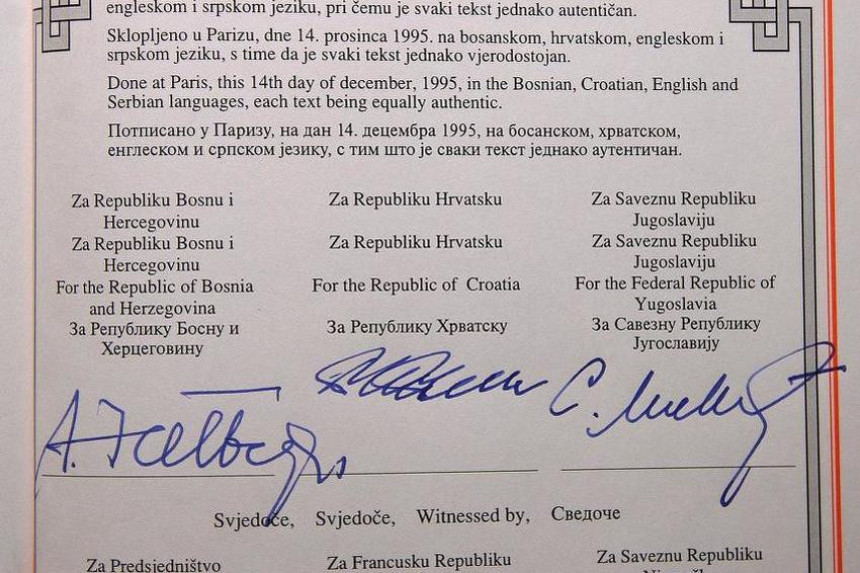 engleskom i srpskom jeziku, pri čemu je svaki tekst jednako autentičan.
Sklopljeno u Parizu, dne 14. prosinca 1995. na bosanskom, hrvatskom, engleskom i
srpskom jeziku, s time da je svaki tekst jednako vjerodostojan.
Done at Paris, this 14th day of december, 1995, in the Bosnian, Croatian, English and
Serbian languages, each text being equally authentic.
Потписано у Паризу, на дан 14. децембра 1995, на босанском, хрватском,
енглеском и српском језику, с тим што је сваки текст једнако аутентичан.
Za Republiku Bosnu i
Hercegovinu
Za Republiku Bosnu i
Hercegovinu
For the Republic of Bosnia
and Herzegovina
За Републику Босну и
Херцеговину
Za Republiku Hrvatsku
Za Republiku Hrvatsku
For the Republic of Croatia
За Републику Хрватску
Za Saveznu Republiku
Jugoslaviju
Za Saveznu Republiku
Jugoslaviju
For the Federal Republic of
Yugoslavia
За Савезну Републику
Југославију
Svjedoče, Svjedoče, Witnessed by, Сведоче
Za Predsjedništvo
Za Francusku Republiku
Za Saveznu Republiku